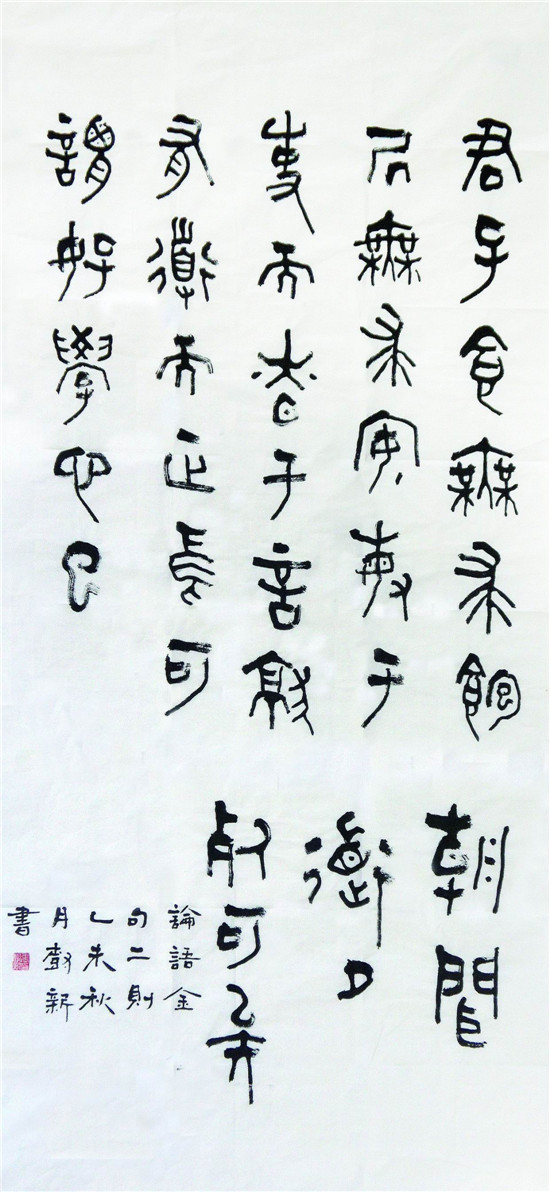 君子食無求飽
居無求安敏于
事而慎于言就
有道而正焉可
謂好學也已
朝聞
道夕
死可矣
論語金
句二則
乙未秋
月彭新
書